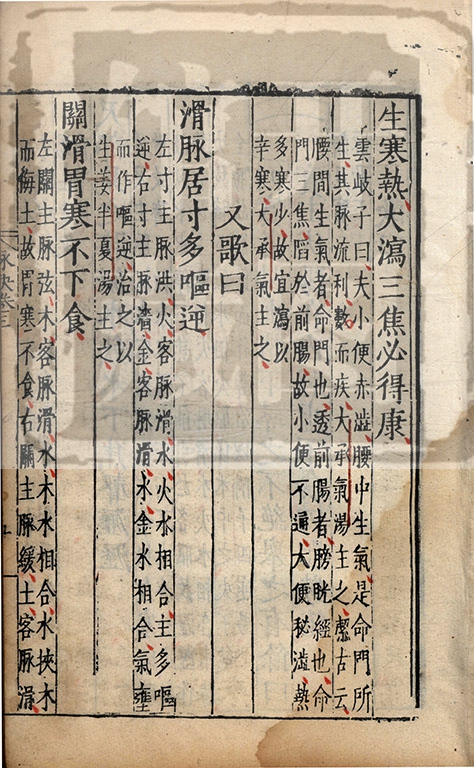 生寒熱大瀉三焦必得康
雲岐子曰大小便赤澁腰中生氣是命門所
生其脉流利數而疾大承氣湯主之潔古云
腰間生氣者命門也透前腸者膀胱經也命
門三焦䧟於前腸故小便不通大便秘澁熱
多寒少故宜瀉以
辛寒大承氣主之
又歌曰
滑脉居寸多嘔逆
左寸主脉洪火客脉滑水火水相合主多嘔
逆右寸主脉濇金客脉滑水金水相合氣壅
而作嘔逆治之以
生姜半夏湯主之
關滑胃寒不下食
左關主脉弦木客脉滑水木水相合水挾木
而侮土故胃寒不食右關主脉緩土客脉滑
脉訣卷三